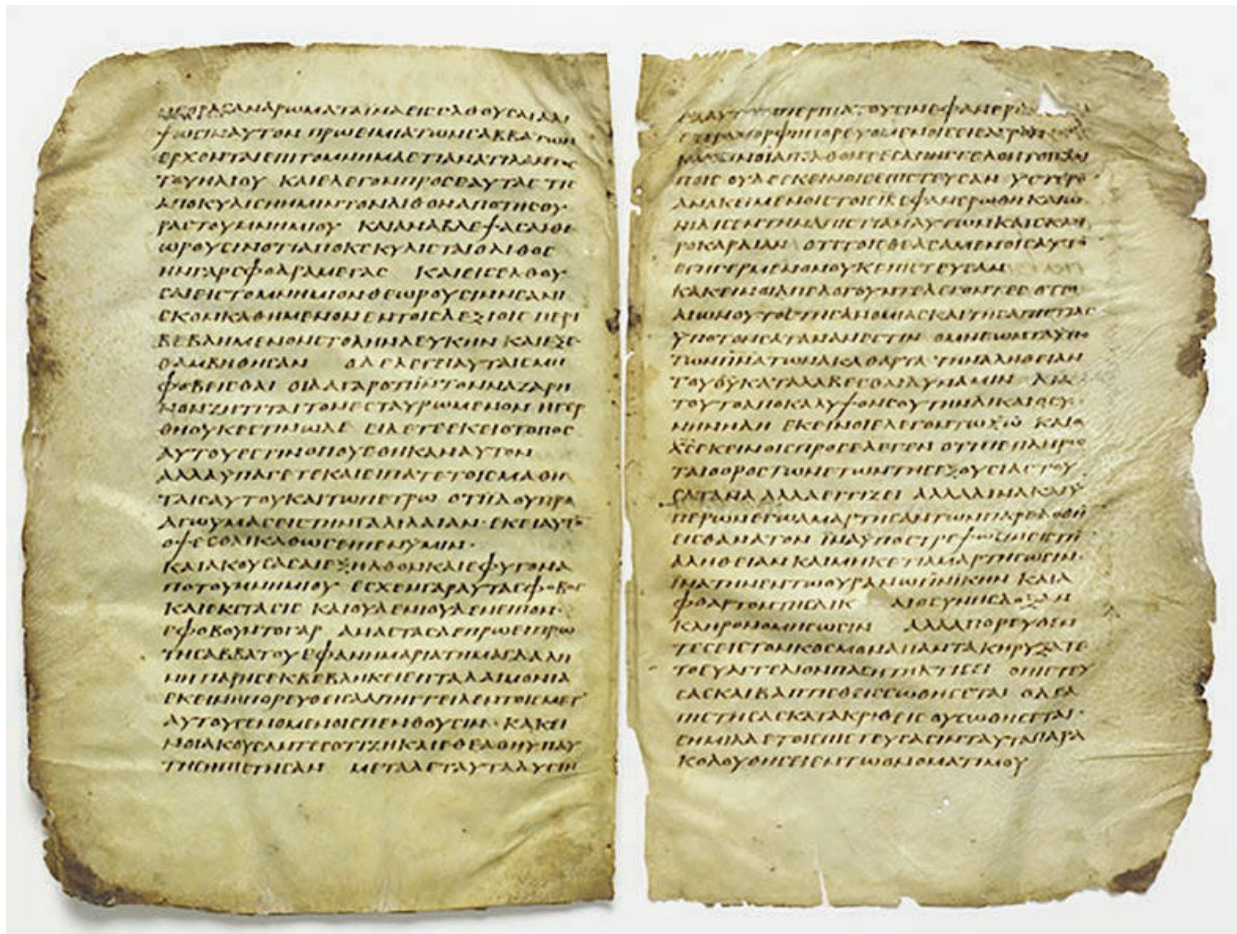 ΗΓΟΡΑCΑΝΑΡΩΜΑΤΑΙΝΑΕΙCΕΛΘΟΥCΑΙΑΛΙ
ΨΩCΙΝΑΥΤΟΝ ΠΡΩΕΙΜΙΑΤΩΝCΑΒΒΑΤΩΝ
ΕΡΧΟΝΤΑΙΕΠΙΤΟΜΝΗΜΑΕΤΙΑΝΑΤΙΛΑΝΤΟC
ΤΟΥΗΛΙΟΥ ΚΑΙΕΛΕΓΟΝΠΡΟCΕΑΥΤΑC ΤΙC
ΑΠΟΚΥΛΙCΗΜΙΝΤΟΝΛΙΘΟΝΑΠΟΤΗCΘΥ
ΡΑCΤΟΥΜΝΗΜΙΟΥ ΚΑΙΑΝΑΒΛΕΨΑCΑΙΘΕ
ΩΡΟΥCΙΝΟΤΙΑΠΟΚΕΚΥΛΙCΤΑΙΟΛΙΘΟC
ΗΝΓΑΡCΦΟΔΡΑΜΕΓΑC ΚΑΙΕΙCΕΛΘΟΥ
CΑΙΕΙCΤΟΜΝΗΜΙΟΝΘΕΩΡΟΥCΙΝΝΕΑΝΙ
CΚΟΝΚΑΘΗΜΕΝΟΝΕΝΤΟΙCΔΕΞΙΟΙC ΠΕΡΙ
ΒΕΒΛΗΜΕΝΟΝCΤΟΛΗΝΛΕΥΚΗΝ ΚΑΙΕΞΕ
ΘΑΜΒΗΘΗCΑΝ ΟΔΕΛΕΓΕΙΑΥΤΑΙCΜΗ
ΦΟΒΕΙCΘΑΙ ΟΙΔΑΓΑΡΟΤΙΙ̅Ν̅ΤΟΝΝΑΖΑΡΗ
ΝΟΝΖΗΤΙΤΑΙΤΟΝΕCΤΑΥΡΩΜΕΝΟΝ ΗΓΕΡ
ΘΗΟΥΚΕCΤΙΝΩΔΕ ΕΙΔΕΤΕΕΚΕΙΟΤΟΠΟC
ΑΥΤΟΥΕCΤΙΝΟΠΟΥΕΘΗΚΑΝΑΥΤΟΝ
ΑΛΛΑΥΠΑΓΕΤΕΚΑΙΕΙΠΑΤΕΤΟΙCΜΑΘΗ
ΤΑΙCΑΥΤΟΥΚΑΙΤΩΠΕΤΡΩ ΟΤΙΙΔΟΥΠΡΟ
ΑΓΩΥΜΑCΕΙCΤΗΝΓΑΛΙΛΑΙΑΝ·ΕΚΕΙΑΥΤΟ
ΟΨΕCΘΑΙΚΑΘΩCΕΙΠΕΝΥΜΙΝ·
ΚΑΙΑΚΟΥCΑCΑΙΕΞΗΛΘΟΝΚΑΙΕΦΥΓΟΝΑ
ΠΟΤΟΥΜΝΗΜΙΟΥ ΕCΧΕΝΓΑΡΑΥΤΑCΦΟΒΟC
ΚΑΙΕΚCΤΑCΙC ΚΑΙΟΥΔΕΝΙΟΥΔΕΝΕΙΠΟΝ·
ΕΦΟΒΟΥΝΤΟΓΑΡ ΑΝΑCΤΑCΔΕΠΡΩΕΙΠΡΩ
ΤΗCΑΒΒΑΤΟΥΕΦΑΝΗΜΑΡΙΑΤΗΜΑΓΔΑΛΗ
ΝΗ ΠΑΡΗCΕΚΒΕΒΛΗΚΕΙΕΠΤΑΔΑΙΜΟΝΙΑ
ΕΚΕΙΝΗΠΟΡΕΥΘΕΙCΑΑΠΗΓΓΕΙΛΕΝΤΟΙCΜΕΤ
ΑΥΤΟΥΓΕΝΟΜΕΝΟΙCΠΕΝΘΟΥCΙΝ·ΚΑΚΕΙ
ΝΟΙΑΚΟΥCΑΝΤΕCΟΤΙΖΗΚΑΙΕΘΕΑΘΗΥΠΑΥ
ΤΗCΗΠΙCΤΗCΑΝ ΜΕΤΑΔΕΤΑΥΤΑΔΥCΙΝ
ΕΞΑΥΤΩΝΠΕΡΙΠΑΤΟΥCΙΝΕΦΑΝΕΡΩ
ΕΤΕΡΑΜΟΡΦΗΠΟΡΕΥΟΜΕΝΟΙCΕΙCΑΓΡΟΝ
ΚΑΚΕΙΝΟΙΑΠΕΛΘΟΝΤΕCΑΠΗΓΓΕΛΟΝΤΟΙCΛΟΙ
ΠΟΙC ΟΥΔΕΕΚΕΙΝΟΙCΕΠΙCΤΕΥCΑΝ ΥCΤΕΡΟ
ΑΝΑΚΕΙΜΕΝΟΙCΤΟΙCΙΑΕΦΑΝΕΡΩΘΗΚΑΙΩ
ΝΙΔΙCΕΝΤΗΝΑΠΙCΤΙΑΝΑΥΤΩΝΚΑΙCΚΛΗ
ΡΟΚΑΡΔΙΑΝ ΟΤΙΤΟΙCΘΕΑCΑΜΕΝΟΙCΑΥΤΟ
ΕΓΗΓΕΡΜΕΝΟΝΟΥΚΕΠΙCΤΕΥCΑΝ
ΚΑΚΕΙΝΟΙΑΠΕΛΟΓΟΥΝΤΕΛΕΓΟΝΤΕC ΟΤΙΟ
ΑΙΩΝΟΥΤΟCΤΗCΑΝΟΜΙΑCΚΑΙΤΗCΑΠΙCΤΙΑC
ΥΠΟΤΟΝCΑΤΑΝΑΝΕCΤΙΝ ΟΜΗΕΩΝΤΑΥΠΟ
ΤΩΝΠ̅Ν̅ΑΤΩΝΑΚΑΘΑΡΤΑ ΤΗΝΑΛΗΘΕΙΑΝ
ΤΟΥΘ̅Υ̅ΚΑΤΑΛΑΒΕCΘΑΙΔΥΝΑΜΙΝ ΔΙΑ
ΤΟΥΤΟΑΠΟΚΑΛΥΨΟΝCΟΥΤΗΝΔΙΚΑΙΟCΥ
ΝΗΝΗΔΗ ΕΚΕΙΝΟΙΕΛΕΓΟΝΤΩΧ̅Ω̅ ΚΑΙΟ
Χ̅C̅ΕΚΕΙΝΟΙCΠΡΟCΕΛΕΓΕΝ ΟΤΙΠΕΠΛΗΡΩ
ΤΑΙΟΟΡΟCΤΩΝΕΤΩΝΤΗCΕΞΟΥCΙΑCΤΟΥ
CΑΤΑΝΑ ΑΛΛΑΕΓΓΙΖΕΙ ΑΛΛΑΔΙΝΑΚΑΙΥ
ΠΕΡΩΝΕΓΩΑΜΑΡΤΗCΑΝΤΩΝΠΑΡΕΔΟΘΗ
ΕΙCΘΑΝΑΤΟΝ ΙΝΑΥΠΟCΤΡΕΨΩCΙΝΕΙCΤΗ
ΑΛΗΘΕΙΑΝ ΚΑΙΜΗΚΕΤΙΑΜΑΡΤΗCΩCΙΝ·
ΙΝΑΤΗΝΕΝΤΩΟΥΡΑΝΩΠ̅Ν̅ΙΚΗΝ ΚΑΙΑ
ΦΘΑΡΤΟΝΤΗCΔΙΚ ΑΙΟCΥΝΗCΔΟΞΑΝ
ΚΛΗΡΟΝΟΜΗCΩCΙΝ ΑΛΛΑΠΟΡΕΥΘΕΝ
ΤΕCΕΙCΤΟΝΚΟCΜΟΝΑΠΑΝΤΑΚΗΡΥΞΑΤΕ
ΤΟΕΥΑΓΓΕΛΙΟΝΠΑCΗΤΗΚΤΙCΕΙ ΟΠΙCΤΕΥ
CΑCΚΑΙΒΑΠΤΙCΘΕΙCCΩΘΗCΕΤΑΙ ΟΔΕΑ
ΠΙCΤΗCΑCΚΑΤΑΚΡΙΘΕΙC ΟΥCΩΘΗCΕΤΑΙ·
CΗΜΙΑΔΕΤΟΙCΠΙCΤΕΥCΑCΙΝΤΑΥΤΑΠΑΡΑ
ΚΟΛΟΥΘΗCΕΙΕΝΤΩΟΝΟΜΑΤΙΜΟΥ